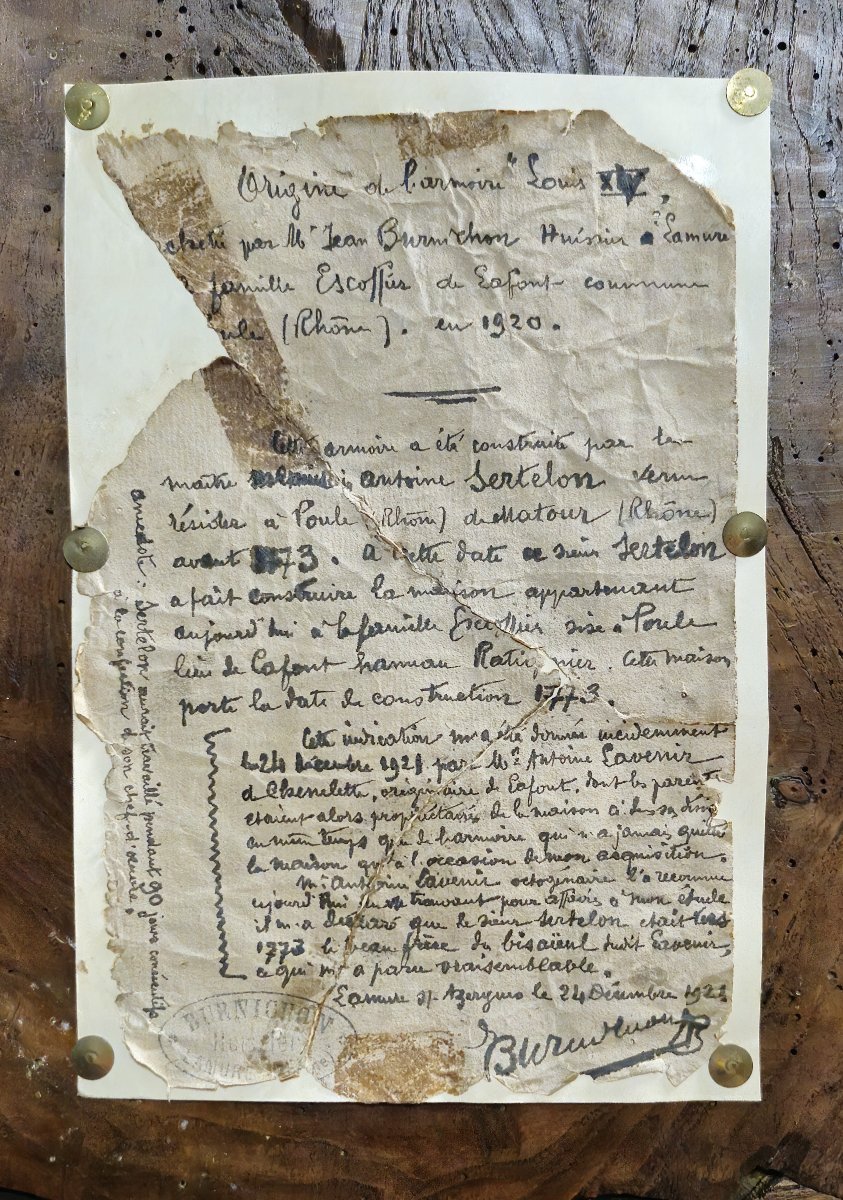 Origine de l'armoire "Louis XIV,
achetée par Mr Jean Burnichon Huissier à Lamure
famille Escoffier de Lafont commune
(Rhône). en 1920.
Cette armoire a été construite par le
maître Antoine Sertelon venu
résider à Poule (Rhône) de Matour (Rhône)
avant 1773. A cette date ce sieur Sertelon
a fait construire la maison appartenant
aujourd'hui à la famille Escoffier sise à Poule
lieu de Lafont hameau. Cette maison
porte la date de construction 1773.
Cette indication m'a été donnée incidemment
le 24 décembre 1921 par Mr Antoine Lavenir
d Chenelette, originaire de Lafont, dont les parents
étaient alors propriétaires de la maison
en même temps que de l'armoire qui n'a jamais quitté
la maison qu'à l'occasion de mon acquisition.
Mr Antoine Lavenir octogénaire l'a reconnue
aujourd'hui en se trouvant pour affaires à mon étude
il m'a déclaré que le sieur Sertelon était
1773 le beau frère du bisaïeul dudit Lavenir,
ce qui m'a paru vraisemblable.
Lamure s/ Azergues le 24 Décembre 1921
Burnichon
anecdote: Sertelon aurait travaillé pendant 90 jours consécutifs
à la confection d son chef-d'œuvre.
BURNICHON
Huissier
LAMURE